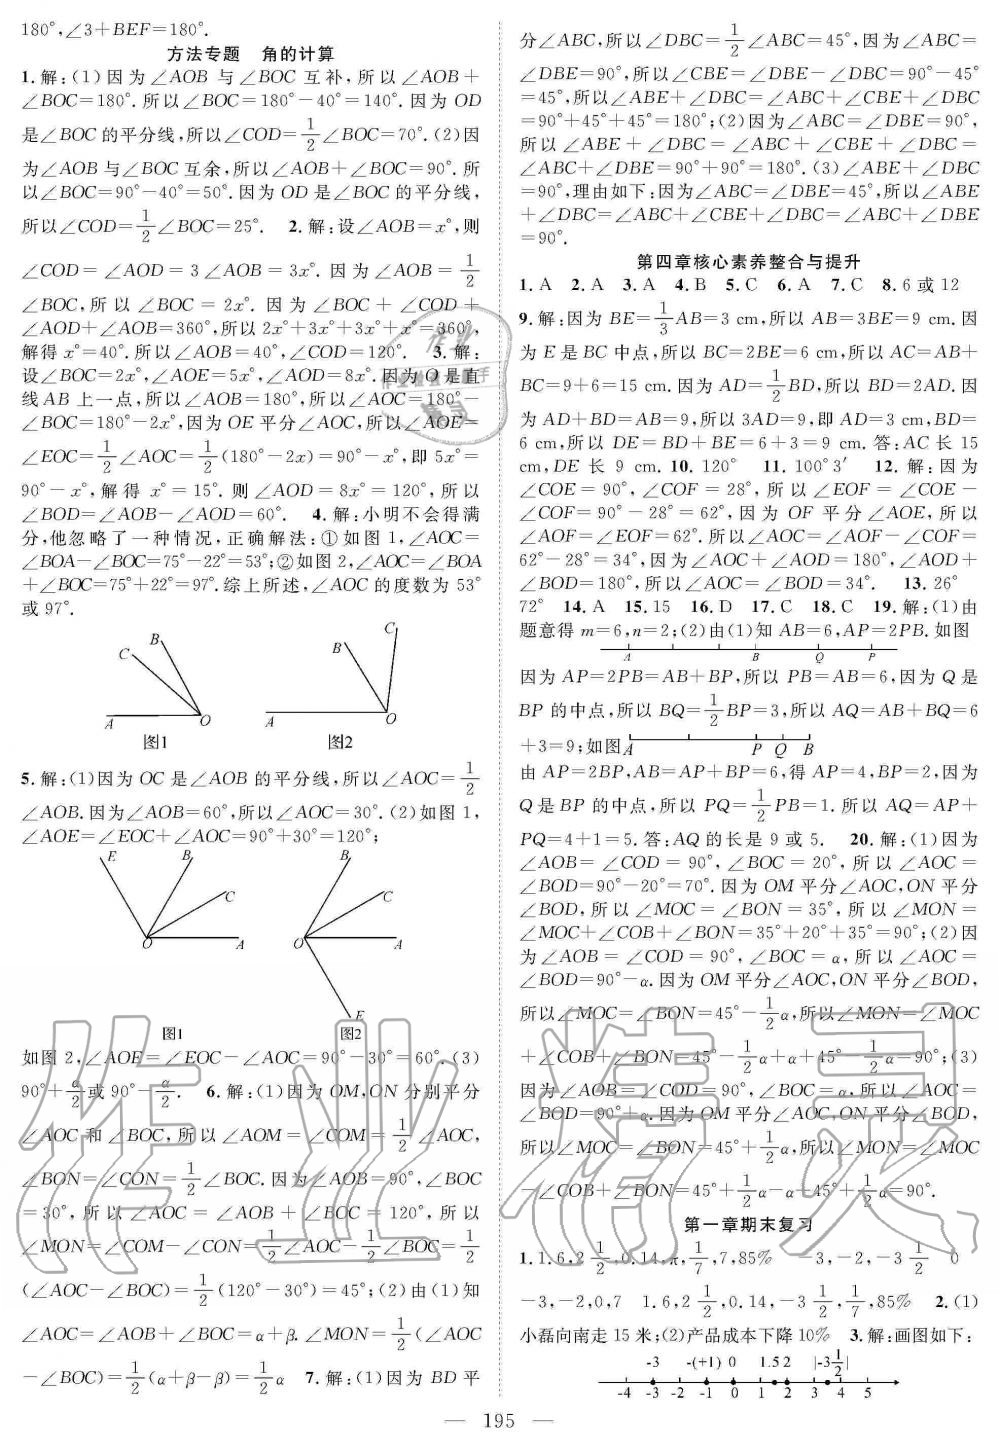 180°,∠3+BEF=180°.
方法专题　角的计算
1.解:(1)因为∠AOB与∠BOC互补,所以∠AOB+
∠BOC=180°.所以∠BOC=180°-40°=140°.因为OD
是∠BOC的平分线,所以∠COD=1/2∠BOC=70°.(2)因
为∠AOB与∠BOC互余,所以∠AOB+∠BOC=90°.所
以∠BOC=90°-40°=50°.因为OD是∠BOC的平分线,
所以∠COD=1/2∠BOC=25°.　2.解:设∠AOB=x°,则
∠COD=∠AOD=3∠AOB=3x°.因为∠AOB=1/2
∠BOC,所以∠BOC=2x°.因为∠BOC+∠COD+
∠AOD+∠AOB=360°,所以2x°+3x°+3x°+x°=360°,
解得x°=40°.所以∠AOB=40°,∠COD=120°.　3.解:
设∠BOC=2x°,∠AOE=5x°,∠AOD=8x°.因为O是直
线AB上一点,所以∠AOB=180°,所以∠AOC=180°-
∠BOC=180°-2x°,因为OE平分∠AOC,所以∠AOE=
∠EOC=1/2∠AOC=1/2(180°-2x)=90°-x°,即5x°=
90°-x°,解得x°=15°.则∠AOD=8x°=120°,所以
∠BOD=∠AOB-∠AOD=60°.　4.解:小明不会得满
分,他忽略了一种情况,正确解法:①如图1,∠AOC=
∠BOA-∠BOC=75°-22°=53°;②如图2,∠AOC=∠BOA
+∠BOC=75°+22°=97°.综上所述,∠AOC的度数为53°
或97°.
B C A O 图1
B C A O 图2
5.解:(1)因为OC是∠AOB的平分线,所以∠AOC=1/2
∠AOB.因为∠AOB=60°,所以∠AOC=30°.(2)如图1,
∠AOE=∠EOC+∠AOC=90°+30°=120°;
E B C O A 图1
B C O A E 图2
如图2,∠AOE=∠EOC-∠AOC=90°-30°=60°.(3)
90°+α/2或90°-α/2.　6.解:(1)因为OM,ON分别平分
∠AOC和∠BOC,所以∠AOM=∠COM=1/2∠AOC,
∠BON=∠CON=1/2∠BOC.因为∠AOB=90°,∠BOC
=30°,所以∠AOC=∠AOB+∠BOC=120°,所以
∠MON=∠COM-∠CON=1/2∠AOC-1/2∠BOC=1/2
(∠AOC-∠BOC)=1/2(120°-30°)=45°;(2)由(1)知
∠AOC=∠AOB+∠BOC=α+β.∠MON=1/2(∠AOC
-∠BOC)=1/2(α+β-β)=1/2α　7.解:(1)因为BD平
分∠ABC,所以∠DBC=1/2∠ABC=45°,因为∠ABC=
∠DBE=90°,所以∠CBE=∠DBE-∠DBC=90°-45°
=45°,所以∠ABE+∠DBC=∠ABC+∠CBE+∠DBC
=90°+45°+45°=180°;(2)因为∠ABC=∠DBE=90°,
所以∠ABE+∠DBC=∠ABC+∠CBE+∠DBC=
∠ABC+∠DBE=90°+90°=180°.(3)∠ABE+∠DBC
=90°,理由如下:因为∠ABC=∠DBE=45°,所以∠ABE
+∠DBC=∠ABC+∠CBE+∠DBC=∠ABC+∠DBE
=90°.
第四章核心素养整合与提升
1.A　2.A　3.A　4.B　5.C　6.A　7.C　8.6或12
9.解:因为BE=1/3AB=3 cm,所以AB=3BE=9 cm.因
为E是BC中点,所以BC=2BE=6 cm,所以AC=AB+
BC=9+6=15 cm.因为AD=1/2BD,所以BD=2AD.因
为AD+BD=AB=9,所以3AD=9,即AD=3 cm,BD=
6 cm,所以DE=BD+BE=6+3=9 cm.答:AC长15
cm,DE长9 cm.　10.120°　11.100°3′　12.解:因为
∠COE=90°,∠COF=28°,所以∠EOF=∠COE-
∠COF=90°-28°=62°,因为OF平分∠AOE,所以
∠AOF=∠EOF=62°.所以∠AOC=∠AOF-∠COF=
62°-28°=34°,因为∠AOC+∠AOD=180°,∠AOD+
∠BOD=180°,所以∠AOC=∠BOD=34°.　13.26°
72°　14.A　15.15　16.D　17.C　18.C　19.解:(1)由
题意得m=6,n=2;(2)由(1)知AB=6,AP=2PB.如图
A B Q P
因为AP=2PB=AB+BP,所以PB=AB=6,因为Q是
BP的中点,所以BQ=1/2BP=3,所以AQ=AB+BQ=6
+3=9;如图 A P Q B
由AP=2BP,AB=AP+BP=6,得AP=4,BP=2,因为
Q是BP的中点,所以PQ=1/2PB=1.所以AQ=AP+
PQ=4+1=5.答:AQ的长是9或5.　20.解:(1)因为
∠AOB=∠COD=90°,∠BOC=20°,所以∠AOC=
∠BOD=90°-20°=70°.因为OM平分∠AOC,ON平分
∠BOD,所以∠MOC=∠BON=35°,所以∠MON=
∠MOC+∠COB+∠BON=35°+20°+35°=90°;(2)因
为∠AOB=∠COD=90°,∠BOC=α,所以∠AOC=
∠BOD=90°-α.因为OM平分∠AOC,ON平分∠BOD,
所以∠MOC=∠BON=45°-1/2α,所以∠MON=∠MOC
+∠COB+∠BON=45°-1/2α+α+45°-1/2α=90°;(3)
因为∠AOB=∠COD=90°,∠BOC=α,所以∠AOC=
∠BOD=90°+α.因为OM平分∠AOC,ON平分∠BOD,
所以∠MOC=∠BON=45°+1/2α,所以∠MON=∠MOC
-∠COB+∠BON=45°+1/2α-α+45°+1/2α=90°.
第一章期末复习
1.1.6,2 1/2,0.14,π,1/7,7,85%　-3,-2,-3 1/2　0
-3,-2,0,7　1.6,2 1/2,0.14,-3 1/2,1/7,85%　2.(1)
小磊向南走15米;(2)产品成本下降10%　3.解:画图如下:
-3 -(+1) 0 1.5 2 |-3 1/2|
-4 -3 -2 -1 0 1 2 3 4 5
— 195 —
作业精灵